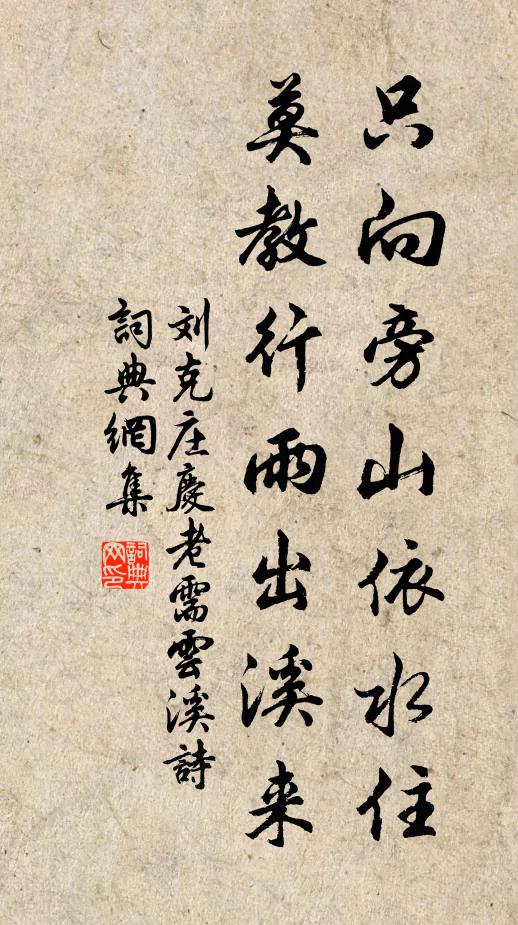 只向旁山依水住
莫教行雨出溪来
刘克庄慶老需雲溪詩
詞典網集
詞典
网印